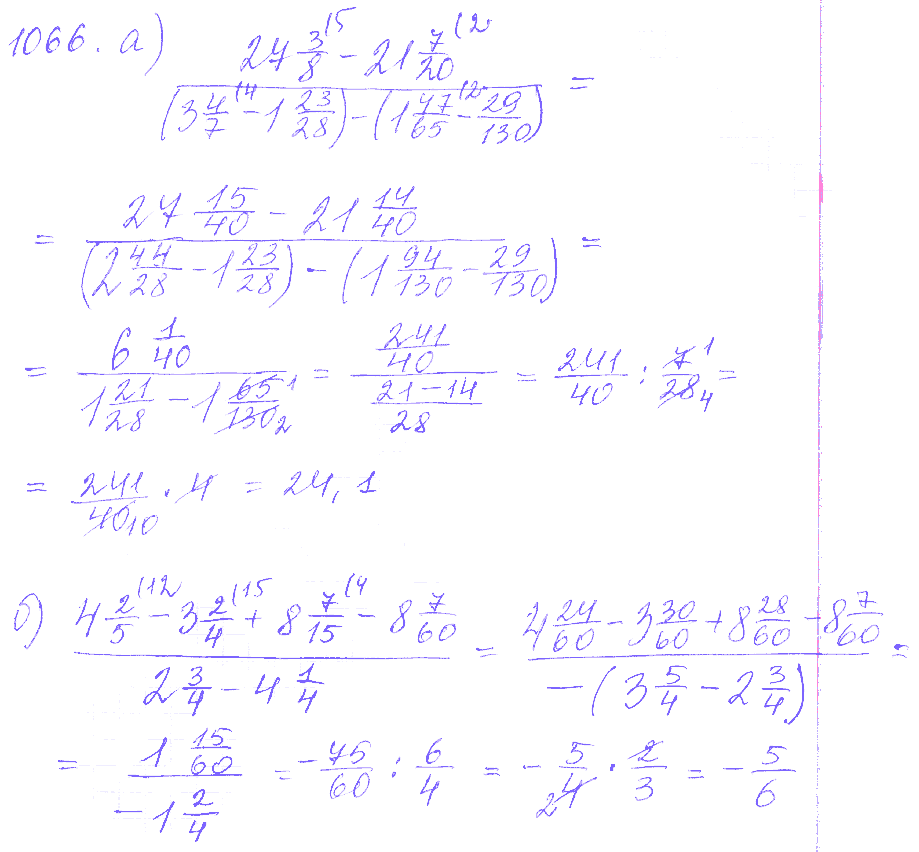 1066. а) (27 3/8 (5 - 21 7/20 (2) / ((3 4/7 (4 - 1 23/28) - (1 47/65 (2 - 29/130)) =
= (27 15/40 - 21 14/40) / ((2 44/28 - 1 23/28) - (1 94/130 - 29/130)) =
= (6 1/40) / (1 21/28 - 1 65/130 1/2) = (241/40) / ((21-14)/28) = 241/40 : 7/28 1/4 =
= 241/40 10 · 4 = 24,1
б) (4 2/5 (12 - 3 2/4 (15 + 8 7/15 (4 - 8 7/60) / (2 3/4 - 4 1/4) = (4 24/60 - 3 30/60 + 8 28/60 - 8 7/60) / (-(3 5/4 - 2 3/4)) =
= (1 15/60) / (-1 2/4) = -75/60 : 6/4 = - 5/4 2 · 2/3 = - 5/6